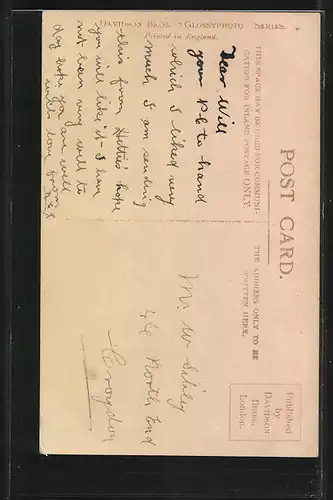 DAVIDSON BROS. "GLOSSYPHOTO" SERIES.
Printed in England.
POST CARD.
THIS SPACE MAY BE USED FOR COMMUNI-
CATION FOR INLAND POSTAGE ONLY.
THE ADDRESS ONLY TO BE
WRITTEN HERE.
Dear Will
your P.C. to hand
which I liked very
much I am sending
this from Hettie's hope
you will like it - I have
not been very well to
day hope you are well
with love from
Mr W
46 North End
Croydon
Published
by
DAVIDSON
BROS.,
London.